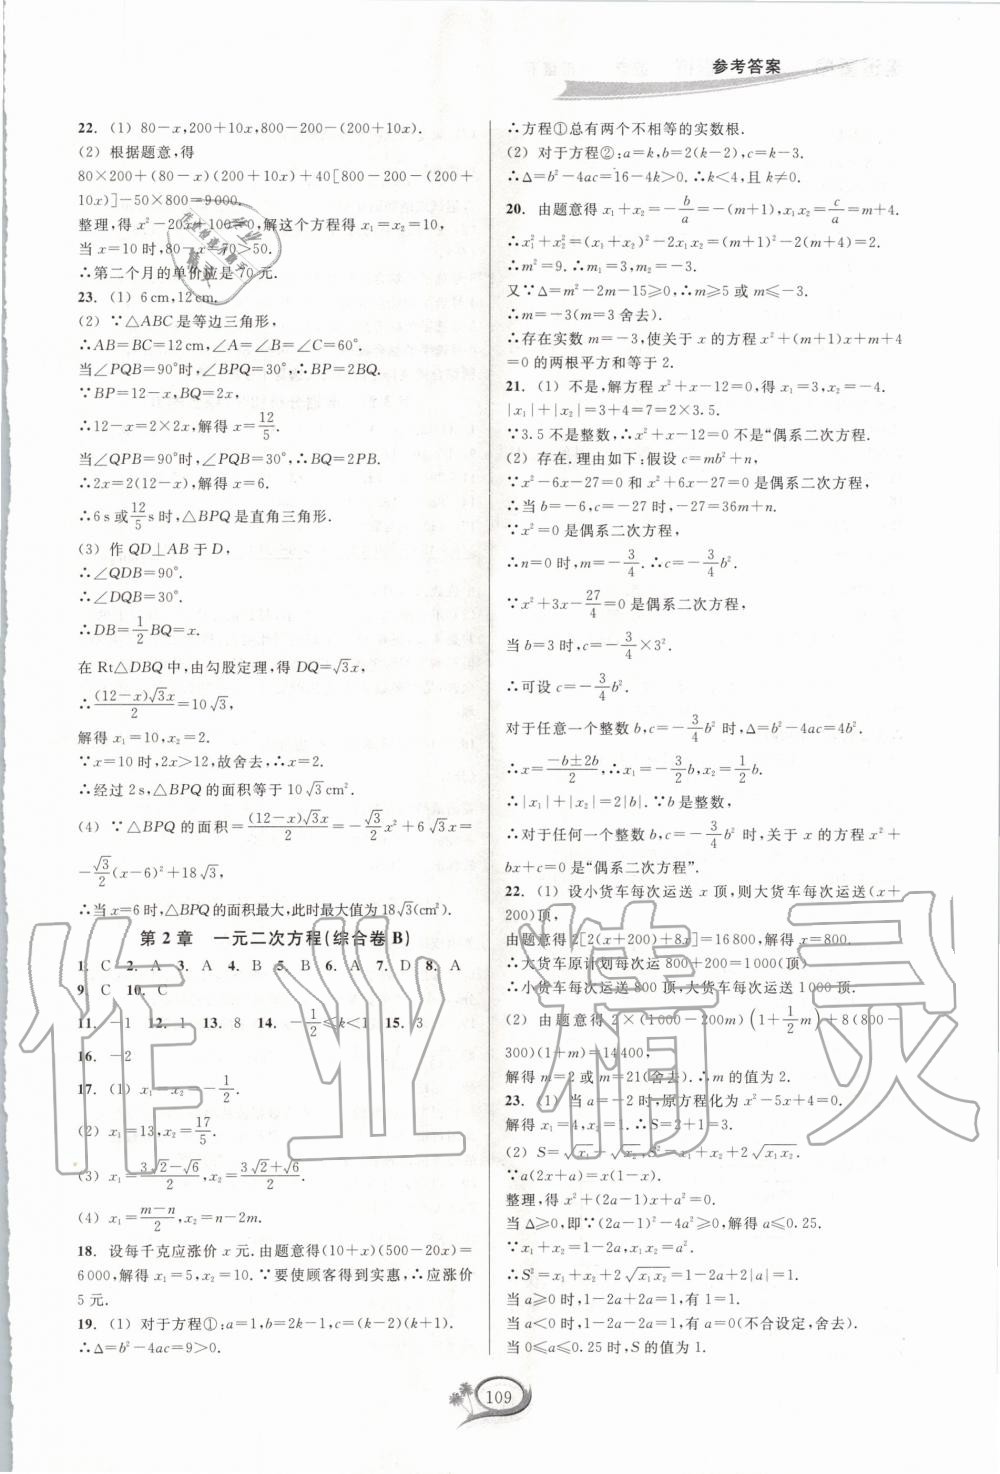 参考答案
22. (1) 80-x,200+10x,800-200-(200+10x).
(2) 根据题意,得
80×200+(80-x)(200+10x)+40[800-200-(200+
10x)]-50×800=9000.
整理,得 x²-20x+100=0,解这个方程得 x₁=x₂=10,
当 x=10 时,80-x=70>50.
∴第二个月的单价应是 70 元.
23. (1) 6 cm,12 cm.
(2) ∵△ABC 是等边三角形,
∴AB=BC=12 cm,∠A=∠B=∠C=60°.
当∠PQB=90°时,∠BPQ=30°,∴BP=2BQ.
∵BP=12-x,BQ=2x,
∴12-x=2×2x,解得 x=12/5.
当∠QPB=90°时,∠PQB=30°,∴BQ=2PB.
∴2x=2(12-x),解得 x=6.
∴6 s 或 12/5 s 时,△BPQ 是直角三角形.
(3) 作 QD⊥AB 于 D,
∴∠QDB=90°.
∴∠DQB=30°.
∴DB=1/2 BQ=x.
在 Rt△DBQ 中,由勾股定理,得 DQ=√3x,
∴(12-x)√3x/2=10√3,
解得 x₁=10,x₂=2.
∵x=10 时,2x>12,故舍去,∴x=2.
∴经过 2 s,△BPQ 的面积等于 10√3 cm².
(4) ∵△BPQ 的面积=(12-x)√3x/2=-√3/2 x²+6√3x=
-√3/2 (x-6)²+18√3,
∴当 x=6 时,△BPQ 的面积最大,此时最大值为 18√3(cm²).
第 2 章 一元二次方程(综合卷 B)
1. C 2. A 3. A 4. B 5. B 6. A 7. D 8. A
9. C 10. C
11. -1 12. 1 13. 8 14. -1/2≤k<1 15. 3
16. -2
17. (1) x₁=x₂=-1/2.
(2) x₁=13,x₂=17/5.
(3) x₁=(3√2-√6)/2,x₂=(3√2+√6)/2.
(4) x₁=(m-n)/2,x₂=n-2m.
18. 设每千克应涨价 x 元.由题意得(10+x)(500-20x)=
6000,解得 x₁=5,x₂=10.∵要使顾客得到实惠,∴应涨价
5 元.
19. (1) 对于方程①:a=1,b=2k-1,c=(k-2)(k+1).
∴Δ=b²-4ac=9>0.
∴方程①总有两个不相等的实数根.
(2) 对于方程②:a=k,b=2(k-2),c=k-3.
∴Δ=b²-4ac=16-4k>0.∴k<4,且 k≠0.
20. 由题意得 x₁+x₂=-b/a=-(m+1),x₁x₂=c/a=m+4.
∴x₁²+x₂²=(x₁+x₂)²-2x₁x₂=(m+1)²-2(m+4)=2.
∴m²=9.∴m₁=3,m₂=-3.
又∵Δ=m²-2m-15≥0,∴m≥5 或 m≤-3.
∴m=-3(m=3 舍去).
∴存在实数 m=-3,使关于 x 的方程 x²+(m+1)x+m+4
=0 的两根平方和等于 2.
21. (1) 不是,解方程 x²+x-12=0,得 x₁=3,x₂=-4.
|x₁|+|x₂|=3+4=7=2×3.5.
∵3.5 不是整数,∴x²+x-12=0 不是“偶系二次方程.
(2) 存在.理由如下:假设 c=mb²+n,
∵x²-6x-27=0 和 x²+6x-27=0 是偶系二次方程,
∴当 b=-6,c=-27 时,-27=36m+n.
∵x²=0 是偶系二次方程,
∴n=0 时,m=-3/4.∴c=-3/4 b².
∵x²+3x-27/4=0 是偶系二次方程,
当 b=3 时,c=-3/4×3².
∴可设 c=-3/4 b².
对于任意一个整数 b,c=-3/4 b² 时,Δ=b²-4ac=4b².
∴x=(-b±2b)/2,∴x₁=-3/2 b,x₂=1/2 b.
∴|x₁|+|x₂|=2|b|.∵b 是整数,
∴对于任何一个整数 b,c=-3/4 b² 时,关于 x 的方程 x²+
bx+c=0 是“偶系二次方程”.
22. (1) 设小货车每次运送 x 顶,则大货车每次运送(x+
200)顶,
由题意得 2[2(x+200)+8x]=16800,解得 x=800.
∴大货车原计划每次运 800+200=1000(顶)
∴小货车每次运送 800 顶,大货车每次运送 1000 顶.
(2) 由题意得 2×(1000-200m)(1+1/2 m)+8(800-
300)(1+m)=14400,
解得 m=2 或 m=21(舍去).∴m 的值为 2.
23. (1) 当 a=-2 时,原方程化为 x²-5x+4=0.
解得 x₁=4,x₂=1.∴S=2+1=3.
(2) S=√x₁+√x₂,S²=x₁+x₂+2√x₁x₂.
∵a(2x+a)=x(1-x).
整理,得 x²+(2a-1)x+a²=0.
当 Δ≥0,即∵(2a-1)²-4a²≥0,解得 a≤0.25.
∵x₁+x₂=1-2a,x₁x₂=a².
∴S²=x₁+x₂+2√x₁x₂=1-2a+2|a|=1.
当 a≥0 时,1-2a+2a=1,有 1=1.
当 a<0 时,1-2a-2a=1,有 a=0(不合设定,舍去).
当 0≤a≤0.25 时,S 的值为 1.
109
作业精灵